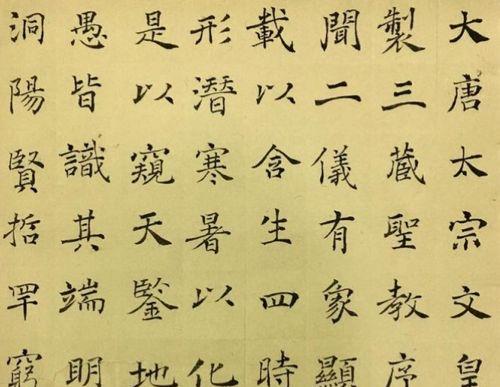 大唐太宗文皇
製三藏聖教序
聞二儀有象顯
載以含生四時
形潛寒暑以化
是以窺天鑒地
愚皆識其端明
洞陽賢哲罕窮